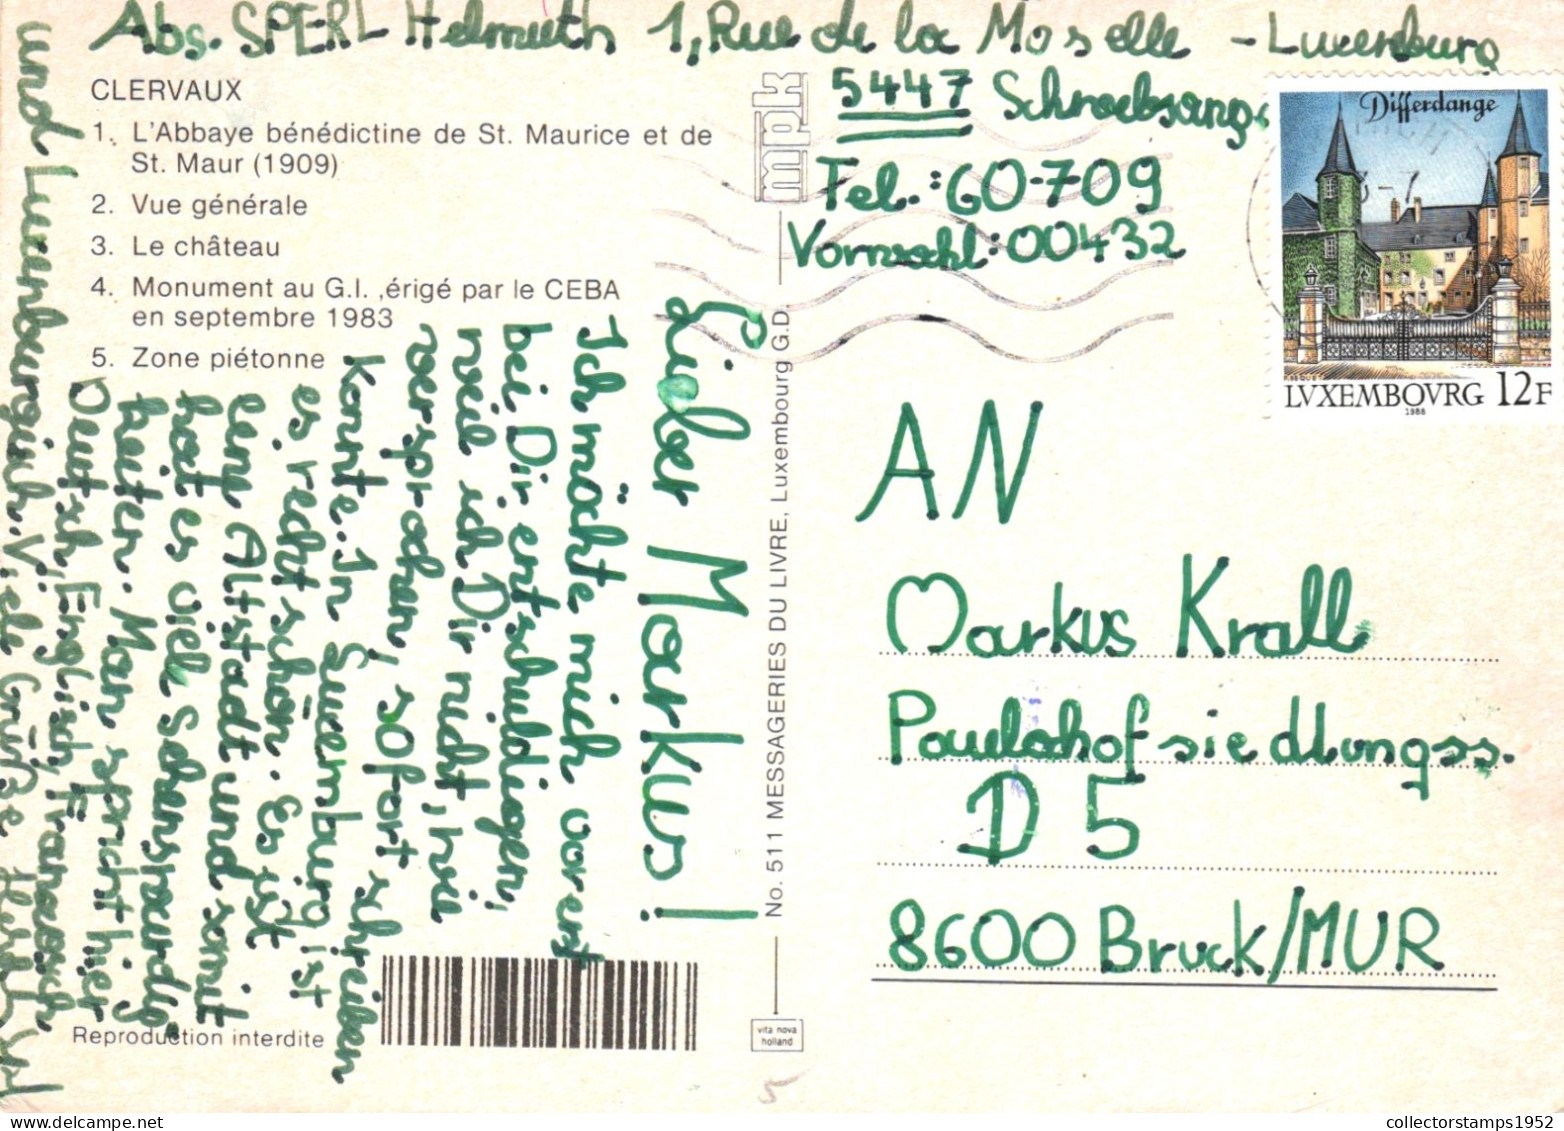 Abs. SPERL Helmuth 1, Rue de la Moselle - Luxenburg
5447 Schwebsange
Tel.: 60-709
Vorwahl: 00432
CLERVAUX
1. L'Abbaye bénédictine de St. Maurice et de
St. Maur (1909)
2. Vue générale
3. Le château
4. Monument au G.I. ,érigé par le CEBA
en septembre 1983
5. Zone piétonne
mpk
Differdange
LVXEMBOVRG 12F
1988
Lieber Markus!
Ich möchte mich vorerst
bei Dir entschuldigen,
weil ich Dir nicht, wie
versprochen, sofort schreiben
konnte. In Luxemburg ist
es recht schön. Es ist
eine Altstadt und somit
hat es viel Sehenswürdig
keiten. Man spricht hier
Deutsch, Englisch, Französisch
und Luxenbourgisch. Viele Grüße
No. 511 MESSAGERIES DU LIVRE, Luxembourg G.D.
AN
Markus Krall
Paulahofsiedlungss.
D 5
8600 Bruck/MUR
Reproduction interdite
vita nova
holland
5
collectorstamps1952